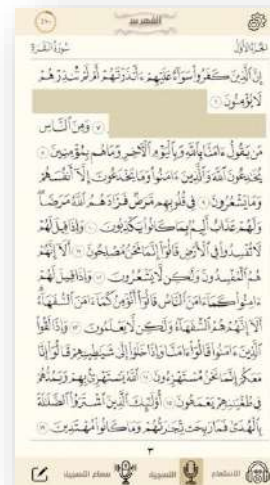 الفهرس
الجزء الأول
سورة البقرة
إِنَّ ٱلَّذِينَ كَفَرُوا۟ سَوَآءٌ عَلَيْهِمْ ءَأَنذَرْتَهُمْ أَمْ لَمْ تُنذِرْهُمْ
لَا يُؤْمِنُونَ ٦
٧ وَمِنَ ٱلنَّاسِ
مَن يَقُولُ ءَامَنَّا بِٱللَّهِ وَبِٱلْيَوْمِ ٱلْـَٔاخِرِ وَمَا هُم بِمُؤْمِنِينَ ٨
يُخَٰدِعُونَ ٱللَّهَ وَٱلَّذِينَ ءَامَنُوا۟ وَمَا يَخْدَعُونَ إِلَّآ أَنفُسَهُمْ
وَمَا يَشْعُرُونَ ٩ فِى قُلُوبِهِم مَّرَضٌ فَزَادَهُمُ ٱللَّهُ مَرَضًا
وَلَهُمْ عَذَابٌ أَلِيمٌۢ بِمَا كَانُوا۟ يَكْذِبُونَ ١٠ وَإِذَا قِيلَ لَهُمْ
لَا تُفْسِدُوا۟ فِى ٱلْأَرْضِ قَالُوٓا۟ إِنَّمَا نَحْنُ مُصْلِحُونَ ١١ أَلَآ إِنَّهُمْ
هُمُ ٱلْمُفْسِدُونَ وَلَٰكِن لَّا يَشْعُرُونَ ١٢ وَإِذَا قِيلَ لَهُمْ
ءَامِنُوا۟ كَمَآ ءَامَنَ ٱلنَّاسُ قَالُوٓا۟ أَنُؤْمِنُ كَمَآ ءَامَنَ ٱلسُّفَهَآءُ
أَلَآ إِنَّهُمْ هُمُ ٱلسُّفَهَآءُ وَلَٰكِن لَّا يَعْلَمُونَ ١٣ وَإِذَا لَقُوا۟
ٱلَّذِينَ ءَامَنُوا۟ قَالُوٓا۟ ءَامَنَّا وَإِذَا خَلَوْا۟ إِلَىٰ شَيَٰطِينِهِمْ قَالُوٓا۟ إِنَّا
مَعَكُمْ إِنَّمَا نَحْنُ مُسْتَهْزِءُونَ ١٤ ٱللَّهُ يَسْتَهْزِئُ بِهِمْ وَيَمُدُّهُمْ
فِى طُغْيَٰنِهِمْ يَعْمَهُونَ ١٥ أُو۟لَٰٓئِكَ ٱلَّذِينَ ٱشْتَرَوُا۟ ٱلضَّلَٰلَةَ
بِٱلْهُدَىٰ فَمَا رَبِحَت تِّجَٰرَتُهُمْ وَمَا كَانُوا۟ مُهْتَدِينَ ١٦
٣
الاستماع
التسجيل